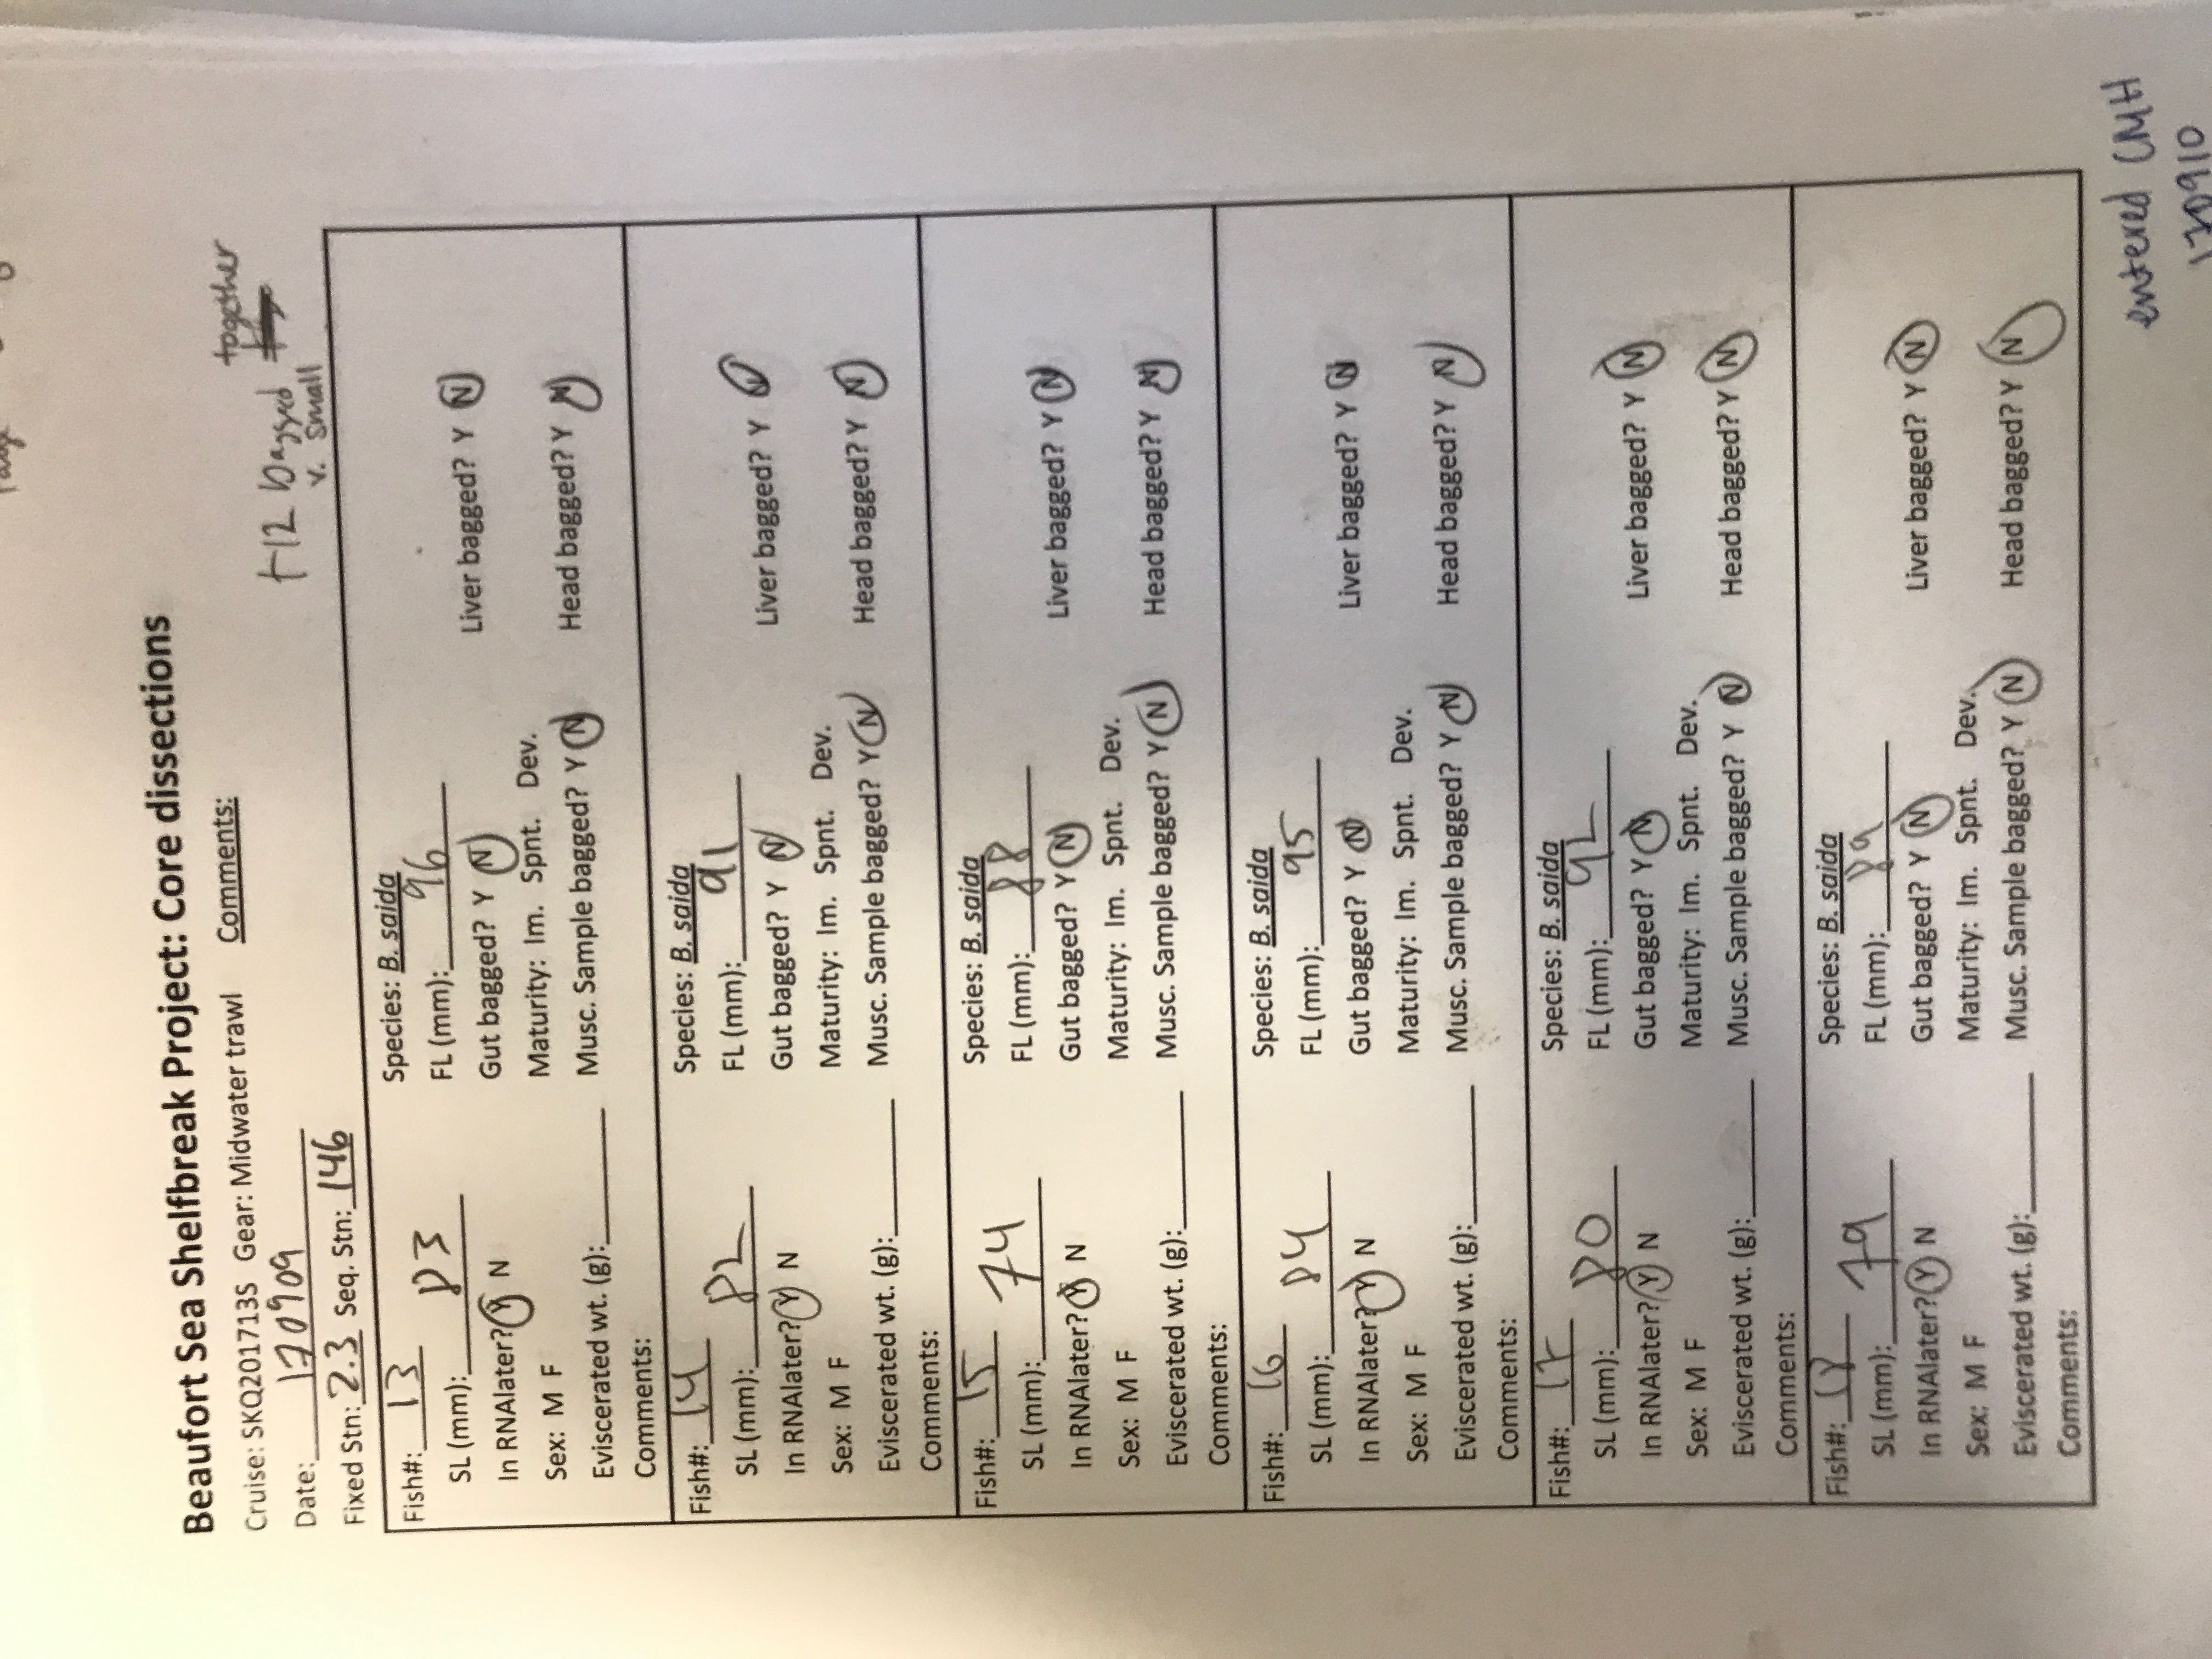 Beaufort Sea Shelfbreak Project: Core dissections
Cruise: SKQ201713S Gear: Midwater trawl Comments:
together
+12 bagged
v. small
Date: 170909
Fixed Stn: 2.3 Seq. Stn: 146
Fish#: 13 Species: B. saida
SL (mm): 83 FL (mm): 96
In RNAlater? Y N Gut bagged? Y N Liver bagged? Y N
Sex: M F Maturity: Im. Spnt. Dev.
Eviscerated wt. (g): Musc. Sample bagged? Y N Head bagged? Y N
Comments:
Fish#: 14 Species: B. saida
SL (mm): 82 FL (mm): 91
In RNAlater? Y N Gut bagged? Y N Liver bagged? Y N
Sex: M F Maturity: Im. Spnt. Dev.
Eviscerated wt. (g): Musc. Sample bagged? Y N Head bagged? Y N
Comments:
Fish#: 15 Species: B. saida
SL (mm): 74 FL (mm): 88
In RNAlater? Y N Gut bagged? Y N Liver bagged? Y N
Sex: M F Maturity: Im. Spnt. Dev.
Eviscerated wt. (g): Musc. Sample bagged? Y N Head bagged? Y N
Comments:
Fish#: 16 Species: B. saida
SL (mm): 84 FL (mm): 95
In RNAlater? Y N Gut bagged? Y N Liver bagged? Y N
Sex: M F Maturity: Im. Spnt. Dev.
Eviscerated wt. (g): Musc. Sample bagged? Y N Head bagged? Y N
Comments:
Fish#: 17 Species: B. saida
SL (mm): 80 FL (mm): 92
In RNAlater? Y N Gut bagged? Y N Liver bagged? Y N
Sex: M F Maturity: Im. Spnt. Dev.
Eviscerated wt. (g): Musc. Sample bagged? Y N Head bagged? Y N
Comments:
Fish#: 18 Species: B. saida
SL (mm): 79 FL (mm): 89
In RNAlater? Y N Gut bagged? Y N Liver bagged? Y N
Sex: M F Maturity: Im. Spnt. Dev.
Eviscerated wt. (g): Musc. Sample bagged? Y N Head bagged? Y N
Comments:
entered CMH
170910